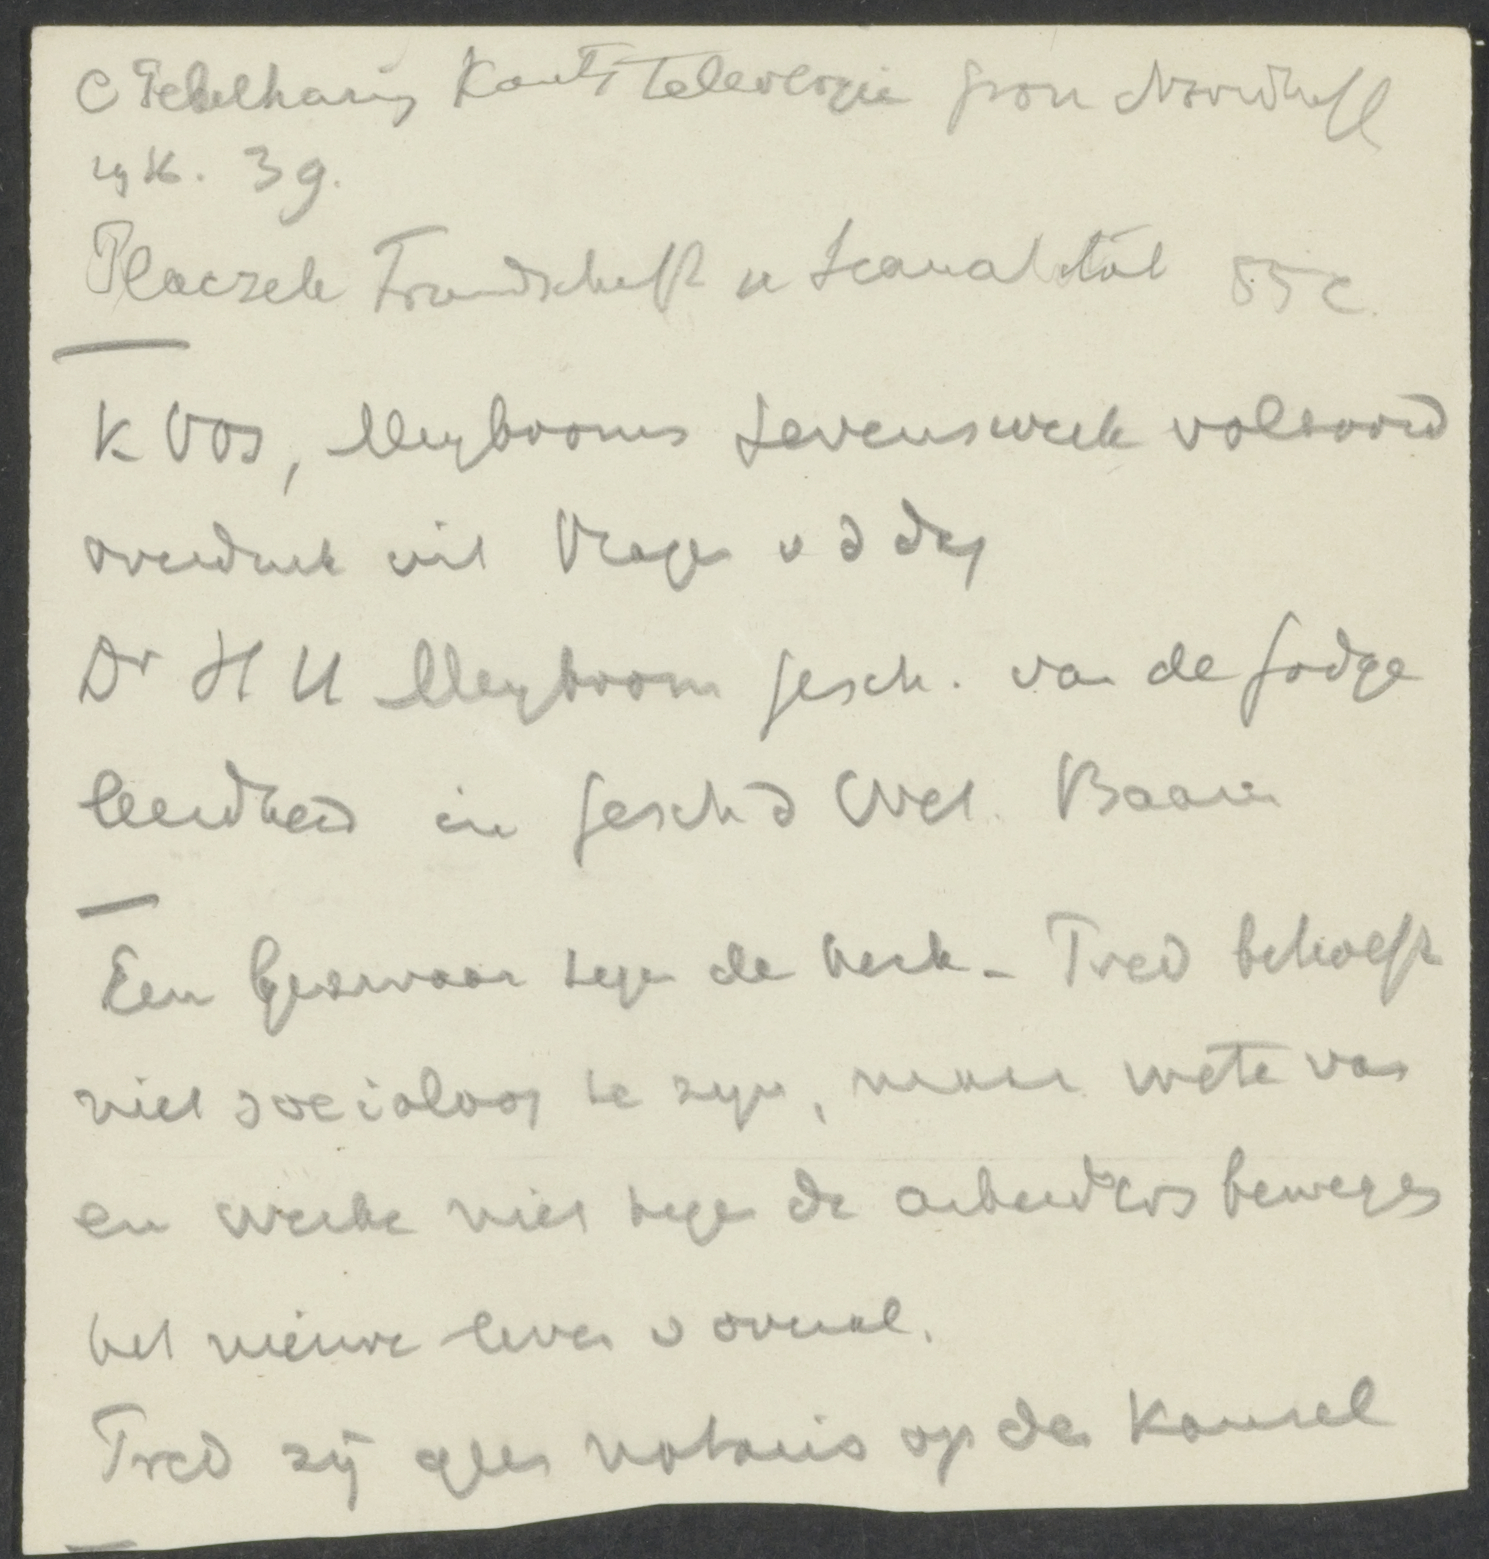 C Pekelharing Kants Teleologie Gron Noordhoff
1916. 3 g.
Placzek Freundschaft u Sexualität 85 c.
K Vos, Meybooms Levenswerk voltooid
overdruk uit Vragen v d dag
Dr H U Meyboom Gesch. van de Godge
leerdheid in Gesch d Wet. Baarn
Een bezwaar tegen de kerk - Pred behoeft
niet socialoog te zijn, maar wete van
en werke niet tegen de arbeidersbeweging
het nieuwe leven v overal.
Pred zij geen notaris op den kansel